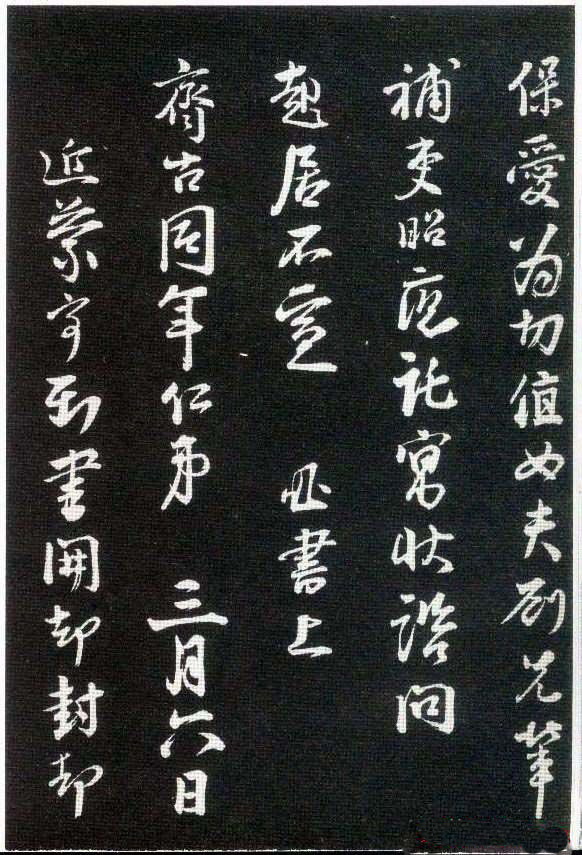 保愛為切值女夫劉兄輩
補吏昭應託寓狀諮問
起居不宣 書上
齊古同年仁弟 三月六日
近蒙寄到書開却封却